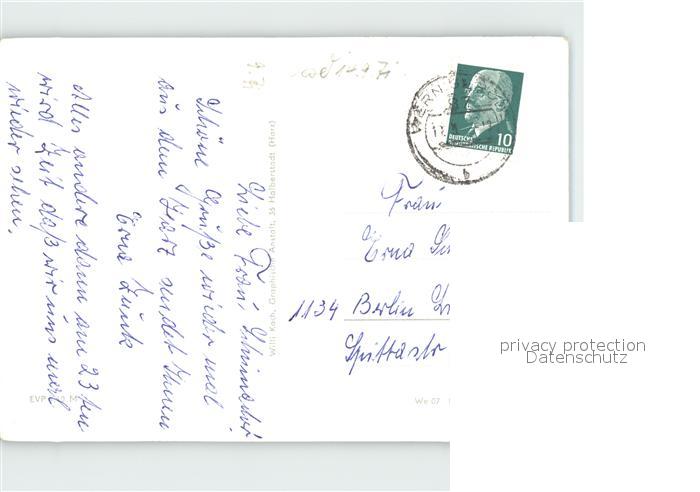 Liebe Frau
Schöne Grüße wieder mal
aus dem Harz sendet Ihnen
Erna
Alles andere dann am 23ten
wird Zeit daß wir uns mal
wieder sehen.
Willi Koch, Graphische Anstalt, 36 Halberstadt (Harz)
EVP
We 07
10
DEUTSCHE
DEMOKRATISCHE REPUBLIK
b
Frau
Erna
1134 Berlin
Spittastr
privacy protection
Datenschutz